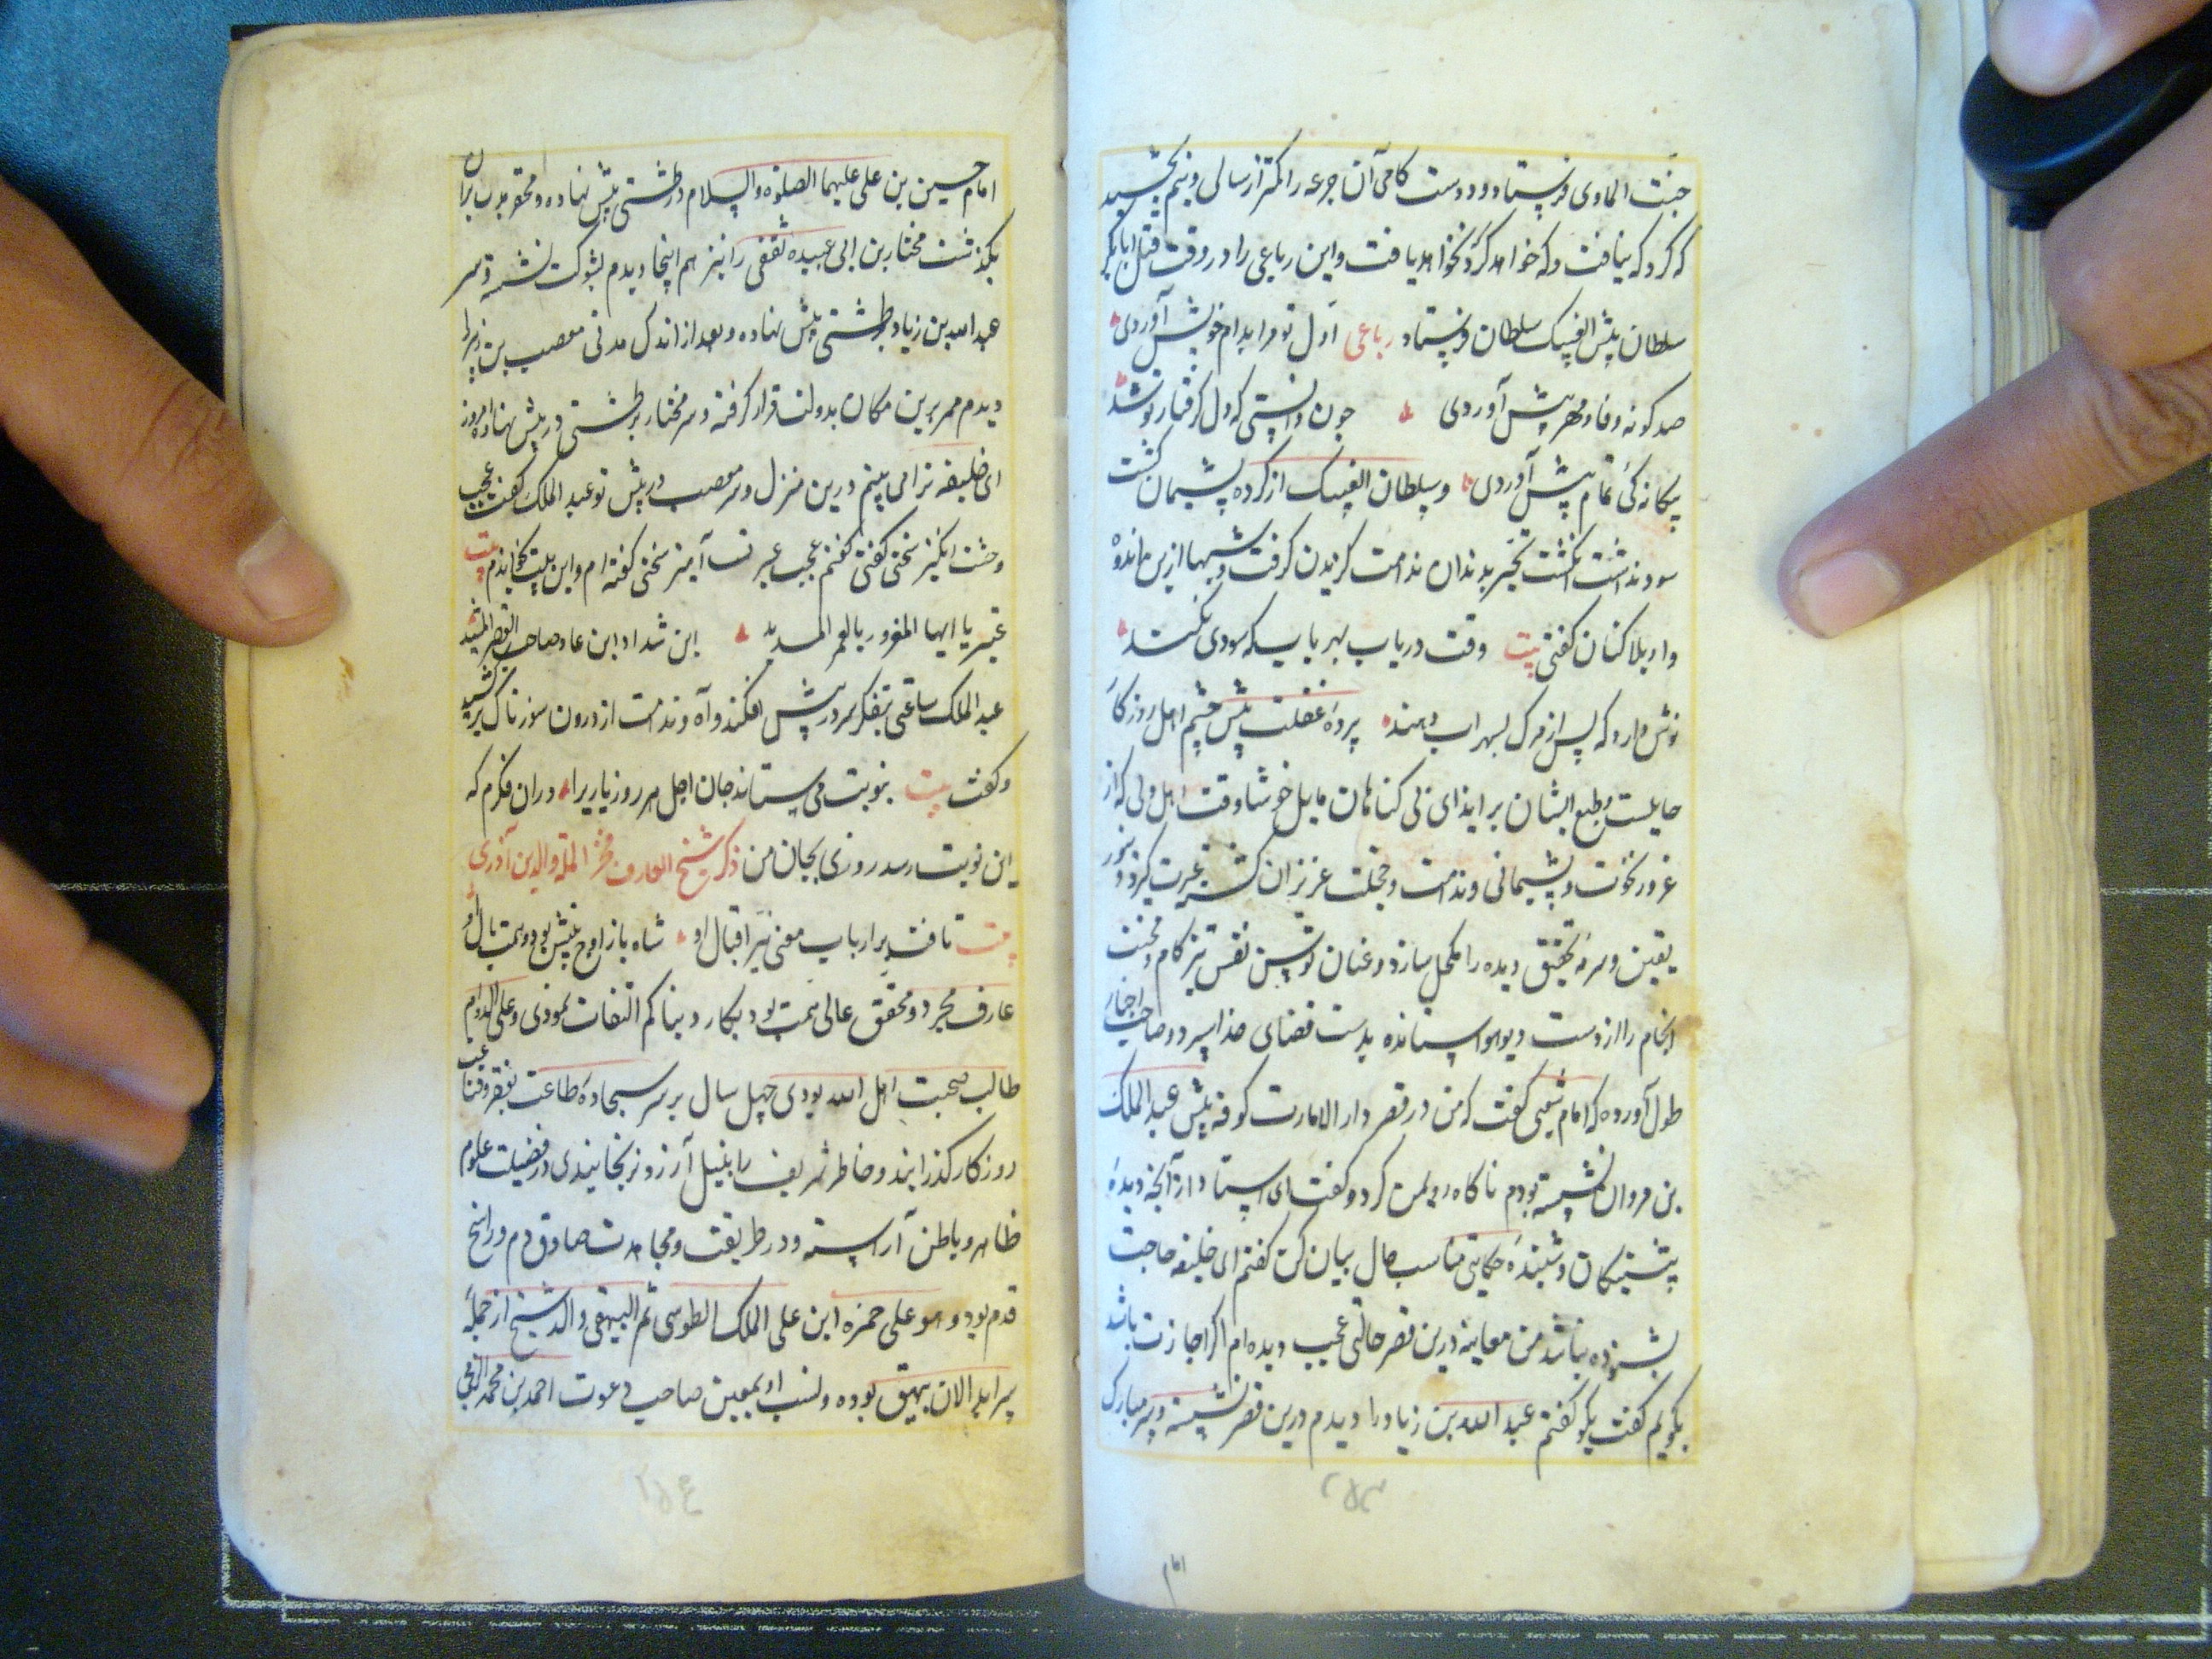 جنت الماوی فرستاد و دوست کامی آن جرعه را کمتر از سالی و نیم بچشید
که کرد که نیافت و که خواهد کرد نخواهد یافت و این رباعی را در وقت قتل ابابکر
سلطان پیش الغ بیک سلطان فرستاد رباعی اول تو مرا بدام خویش آوردی
صد کونه وفا و مهر پیش آوردی چون دانستی که دل کرفتار تو شد
بیکانه کی تمام پیش آوردی و سلطان الغ بیک از کرده پشیمان کشت
سود نداشت انکشت تحیر بدندان ندامت کزیدن کرفت و شبها ازین اندوه
واویلا کنان کفتی بیت وقت دریاب بهر باب که سودی نکند
نوش دارو که پس از مرک بسهراب دهند پرده غفلت پیش چشم اهل روزکار
حایلست و طبع ایشان بر ایذای بی کناهان مایل خوشا وقت اهل دلی که از
غرور نخوت و پشیمانی و ندامت و خجلت عزیزان کذشته عبرت کیرد و بنور
یقین و سرمه تحقیق دیده را مکحل سازد و عنان توسن نفس تیز کام محنت
انجام را از دست دیو هوا ستانده بدست قضای خدا سپرد و صاحب اخبار
طول آورده که امام شعبی کفت که من در قصر دار الامارت کوفه پیش عبد الملک
بن مروان نشسته بودم ناکاه روی بمن کرد و کفت ای استاد از آنچه دیده
پیشینکان و شنیده حکایتی مناسب حال بیان کن کفتم ای خلیفه حاجت
بشنوده نباشد من معاینه درین قصر حالتی عجیب دیده ام اکر اجازت باشد
بکویم کفت بکو کفتم عبد الله بن زیاد را دیدم درین قصر نشسته و سر مبارک
امام
امام حسین بن علی علیهما الصلوة والسلام در طشتی پیش نهاده و محقر مدت بران
بکذشت مختار بن ابی عبیده ثقفی را نیز هم اینجا دیدم بشوکت نشسته و سر
عبد الله بن زیاد در طشتی پیش نهاده و بعد از اندک مدتی مصعب بن زبیر را
دیدم هم برین مکان بدولت قرار کرفته و سر مختار در طشتی در پیش نهاده امروز
ای خلیفه ترا می بینم درین منزل و سر مصعب در پیش تو عبد الملک کفت عجیب
وحشت انکیز سخنی کفتی کفتم عجب عبرت آمیز سخنی کفته ام و این بیت بخواندم بیت
عبر یا ایها المغرور بالعمر المدید این شداد ابن عاد صاحب القصر المشید
عبد الملک ساعتی بتفکر سر در پیش افکند و آه و ندامت از درون سوزناک برکشید
و کفت بیت بنوبت می ستاند جان اجل هر روز یاری را دران فکرم که
این نوبت رسد روزی بجان من ذکر شیخ العارف فخر الملة والدین آذری
بیت تافته بر ارباب معنی نیر اقبال او شاه باز اوج بینش بود و همت بال او
عارف مجرد و محقق عالی همت بود بکار دنیا کم التفات نمودی و علی الدوام
طالب صحبت اهل الله بودی چهل سال بر سر سجاده طاعت بفقر و قناعت
روزکار کذرانید و خاطر شریف را بنیل آرزو نرنجانیدی در فضیلت علوم
ظاهر و باطن آراسته و در طریقت و مجاهدت صادق دم و راسخ
قدم بود و هو علی حمزه ابن علی الملک الطوسی ثم البیهقی والد شیخ از جمله
سرابدالان بیهق بوده و نسب او بمعین صاحب دعوت احمد بن محمد الزمجی